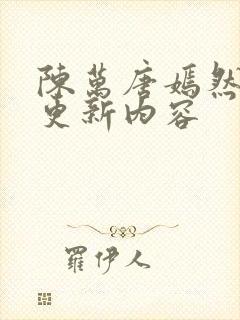 陳萬唐嫣然
更新內容
羅伊人